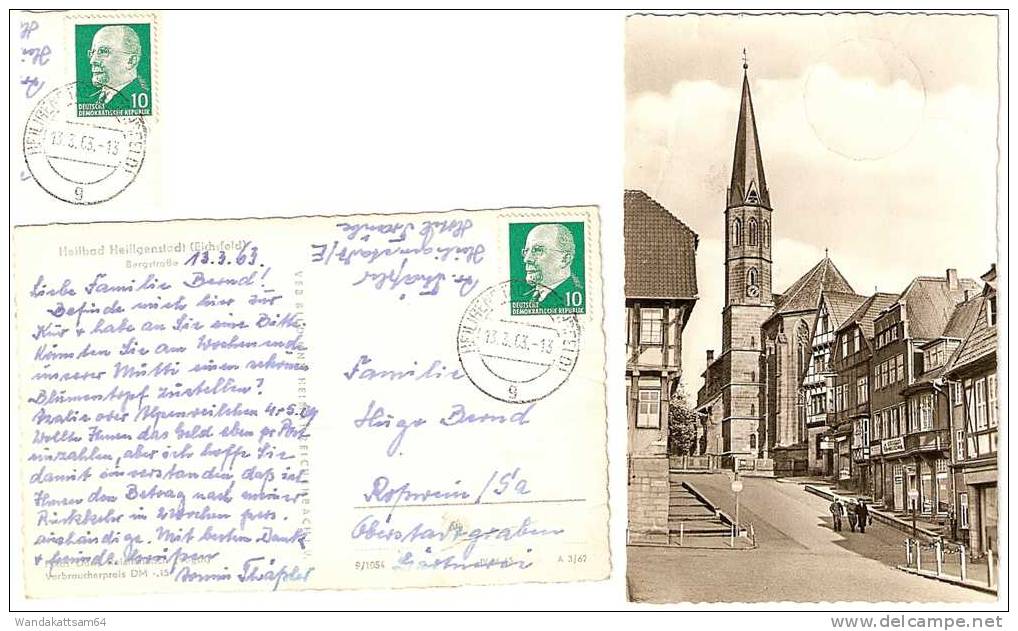 DEUTSCHE
DEMOKRATISCHE REPUBLIK
10
13.3.63.-13
g
Heilbad Heiligenstadt (Eichsfeld)
Bergstraße
13.3.63.
Liebe Familie Bernd!
Befinde mich hier zur
Kur & habe an Sie eine Bitte.
Könnten Sie am Wochenende
unserer Mutti einen schönen
Blumentopf zustellen?
Azalie oder Alpenveilchen 4 & 5.
Wollte Ihnen das Geld eben per Post
einzahlen, aber ich hoffe Sie
damit einverstanden daß ich
Ihnen den Betrag nach meiner
Rückkehr in Wochen pers.
aushändige. Mit besten Dank
& freundl. Grüßen
Verbraucherpreis DM -,15
Heiligenstadt/E
DEUTSCHE
DEMOKRATISCHE REPUBLIK
10
13.3.63.-13
g
Familie
Hugo Bernd
Roßwein/Sa
Oberstadtgraben
Gärtnerei
9/1054
A 3/62
Wandakattsam64